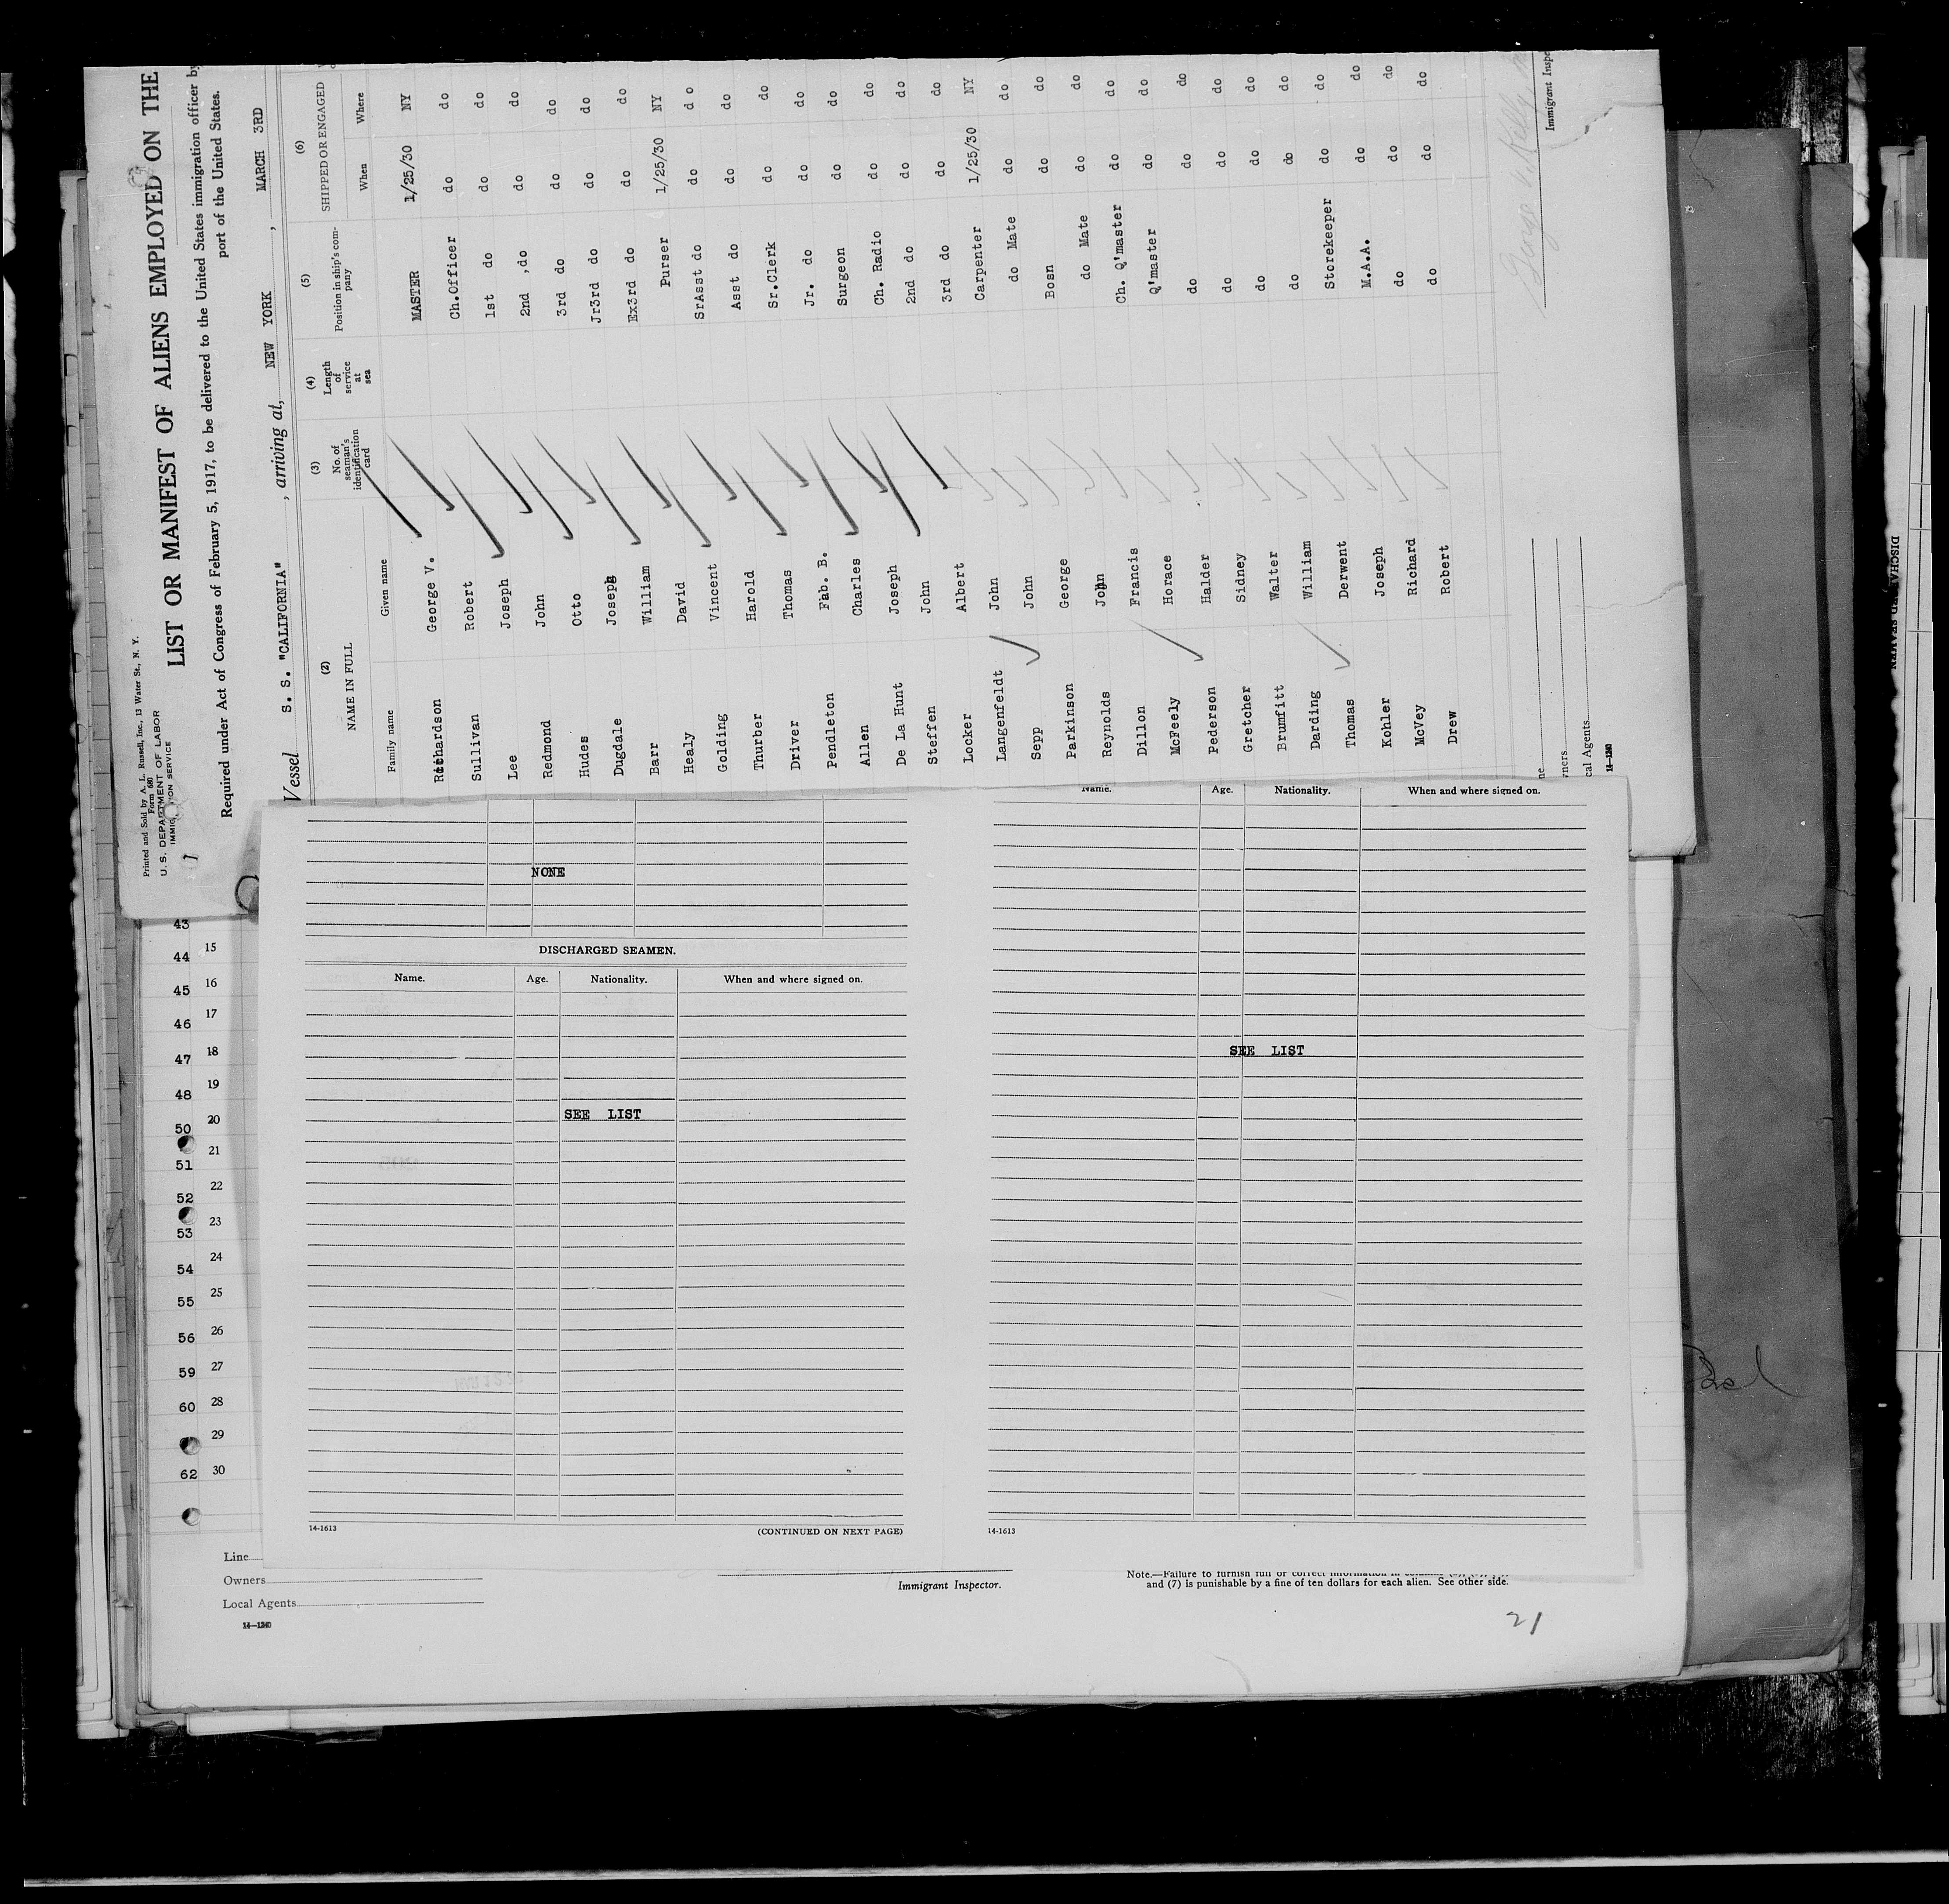 Printed and Sold by A. L. Russell, Inc., 13 Water St., N. Y.
Form 680
U. S. DEPARTMENT OF LABOR
IMMIGRATION SERVICE
LIST OR MANIFEST OF ALIENS EMPLOYED ON THE
Required under Act of Congress of February 5, 1917, to be delivered to the United States immigration officer by
port of the United States.
Vessel S. S. "CALIFORNIA", arriving at, NEW YORK, MARCH 3RD
(2) (3) (4) (5) (6)
NAME IN FULL No. of seaman's identification card Length of service at sea Position in ship's company SHIPPED OR ENGAGED
Family name Given name When Where
Richardson George V. MASTER 1/25/30 NY
Sullivan Robert Ch.Officer do do
Lee Joseph 1st do do do
Redmond John 2nd ,do do do
Hudes Otto 3rd do do do
Dugdale Joseph Jr3rd do do do
Barr William Ex3rd do do do
Healy David Purser 1/25/30 NY
Golding Vincent SrAsst do do do
Thurber Harold Asst do do do
Driver Thomas Sr.Clerk do do
Pendleton Fab. B. Jr. do do do
Allen Charles Surgeon do do
De La Hunt Joseph Ch. Radio do do
Steffen John 2nd do do do
Locker Albert 3rd do do do
Langenfeldt John Carpenter 1/25/30 NY
Sepp John do Mate do do
Parkinson George Bosn do do
Reynolds John do Mate do do
Dillon Francis Ch. Q'master do do
McFeely Horace Q'master do do
Pederson Halder do do do
Gretcher Sidney do do do
Brumfitt Walter do do do
Darding William do do do
Thomas Derwent Storekeeper do do
Kohler Joseph M.A.A. do do
McVey Richard do do do
Drew Robert do do do
Immigrant Inspe
ne
ners
cal Agents
14-1240
NONE
DISCHARGED SEAMEN.
Name. Age. Nationality. When and where signed on.
SEE LIST
14-1613 (CONTINUED ON NEXT PAGE)
Name. Age. Nationality. When and where signed on.
SEE LIST
14-1613
43
44 15
45 16
46 17
47 18
48 19
50 20
51 21
52 22
53 23
54 24
55 25
56 26
59 27
60 28
29
62 30
Line
Owners
Local Agents
14-1240
Immigrant Inspector.
Note.—Failure to furnish full or correct information in columns
and (7) is punishable by a fine of ten dollars for each alien. See other side.
21